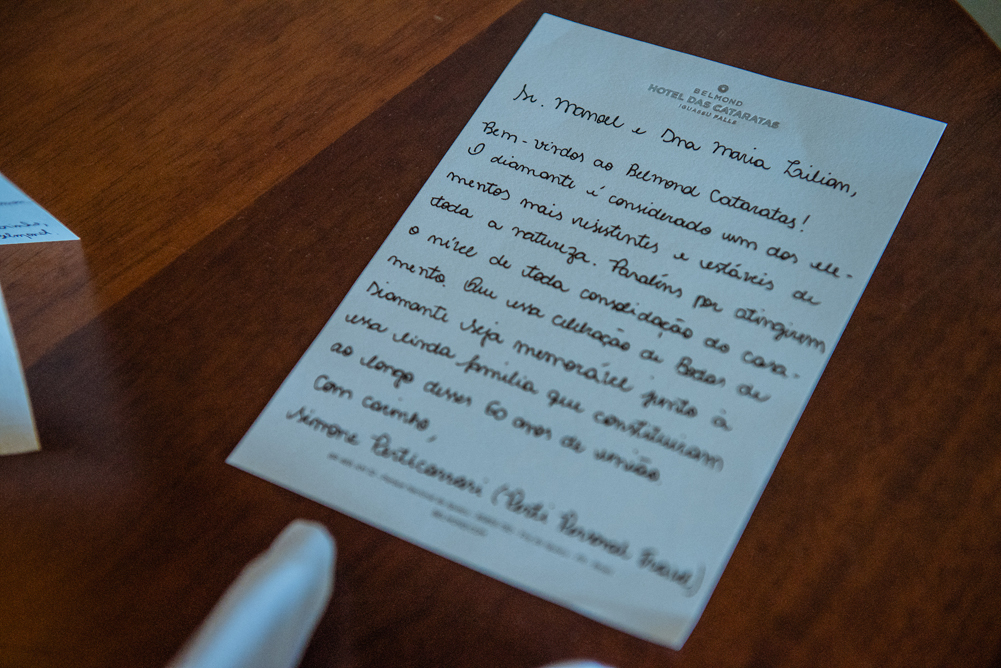 BELMOND
HOTEL DAS CATARATAS
IGUASSU FALLS
Sr. Manoel e Dna Maria Lilian,
Bem-vindos ao Belmond Cataratas!
O diamante é considerado um dos ele-
mentos mais resistentes e estáveis de
toda a natureza. Parabéns por atingirem
o nível de toda consolidação do casa-
mento. Que essa celebração de Bodas de
Diamante seja memorável junto à
essa linda família que constituíram
ao longo desses 60 anos de união.
Com carinho,
Simone Porticarrari (Porti Personal Travel)